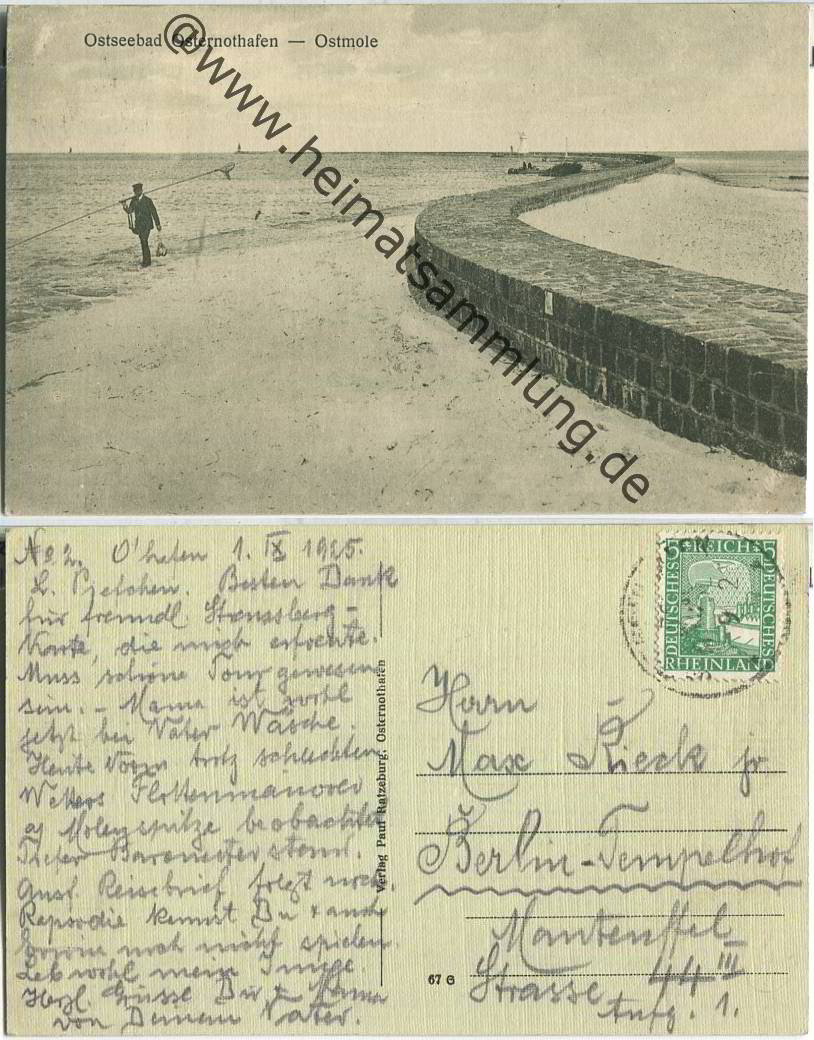 Ostseebad Osternothafen — Ostmole
@www.heimatsammlung.de
No 2. O'hafen 1. IX 1925.
Besten Dank
für freundl. Straussberg-
Karte, die mich erfreute.
Muss schöne Tour gewesen
sein. - Mama ist wohl
jetzt bei Vater Wäsche.
Heute Vorm trotz schlechten
Wetters Flottenmanöver
a/ Molenspitze beobachtet
Tiefer Barometerstand.
Ausf. Reisebrief folgt noch.
Rapsodie kennst Du + auch
noch nicht spielen.
Leb wohl mein Junge.
Herzl. Grüsse Dir + Mama
von Deinem Vater.
Verlag Paul Ratzeburg, Osternothafen
67 G
5 REICH 5
DEUTSCHES
DEUTSCHES
RHEINLAND
Herrn
Max Rieck jr
Berlin-Tempelhof
Manteuffel
Strasse 44 III
Aufg. 1.